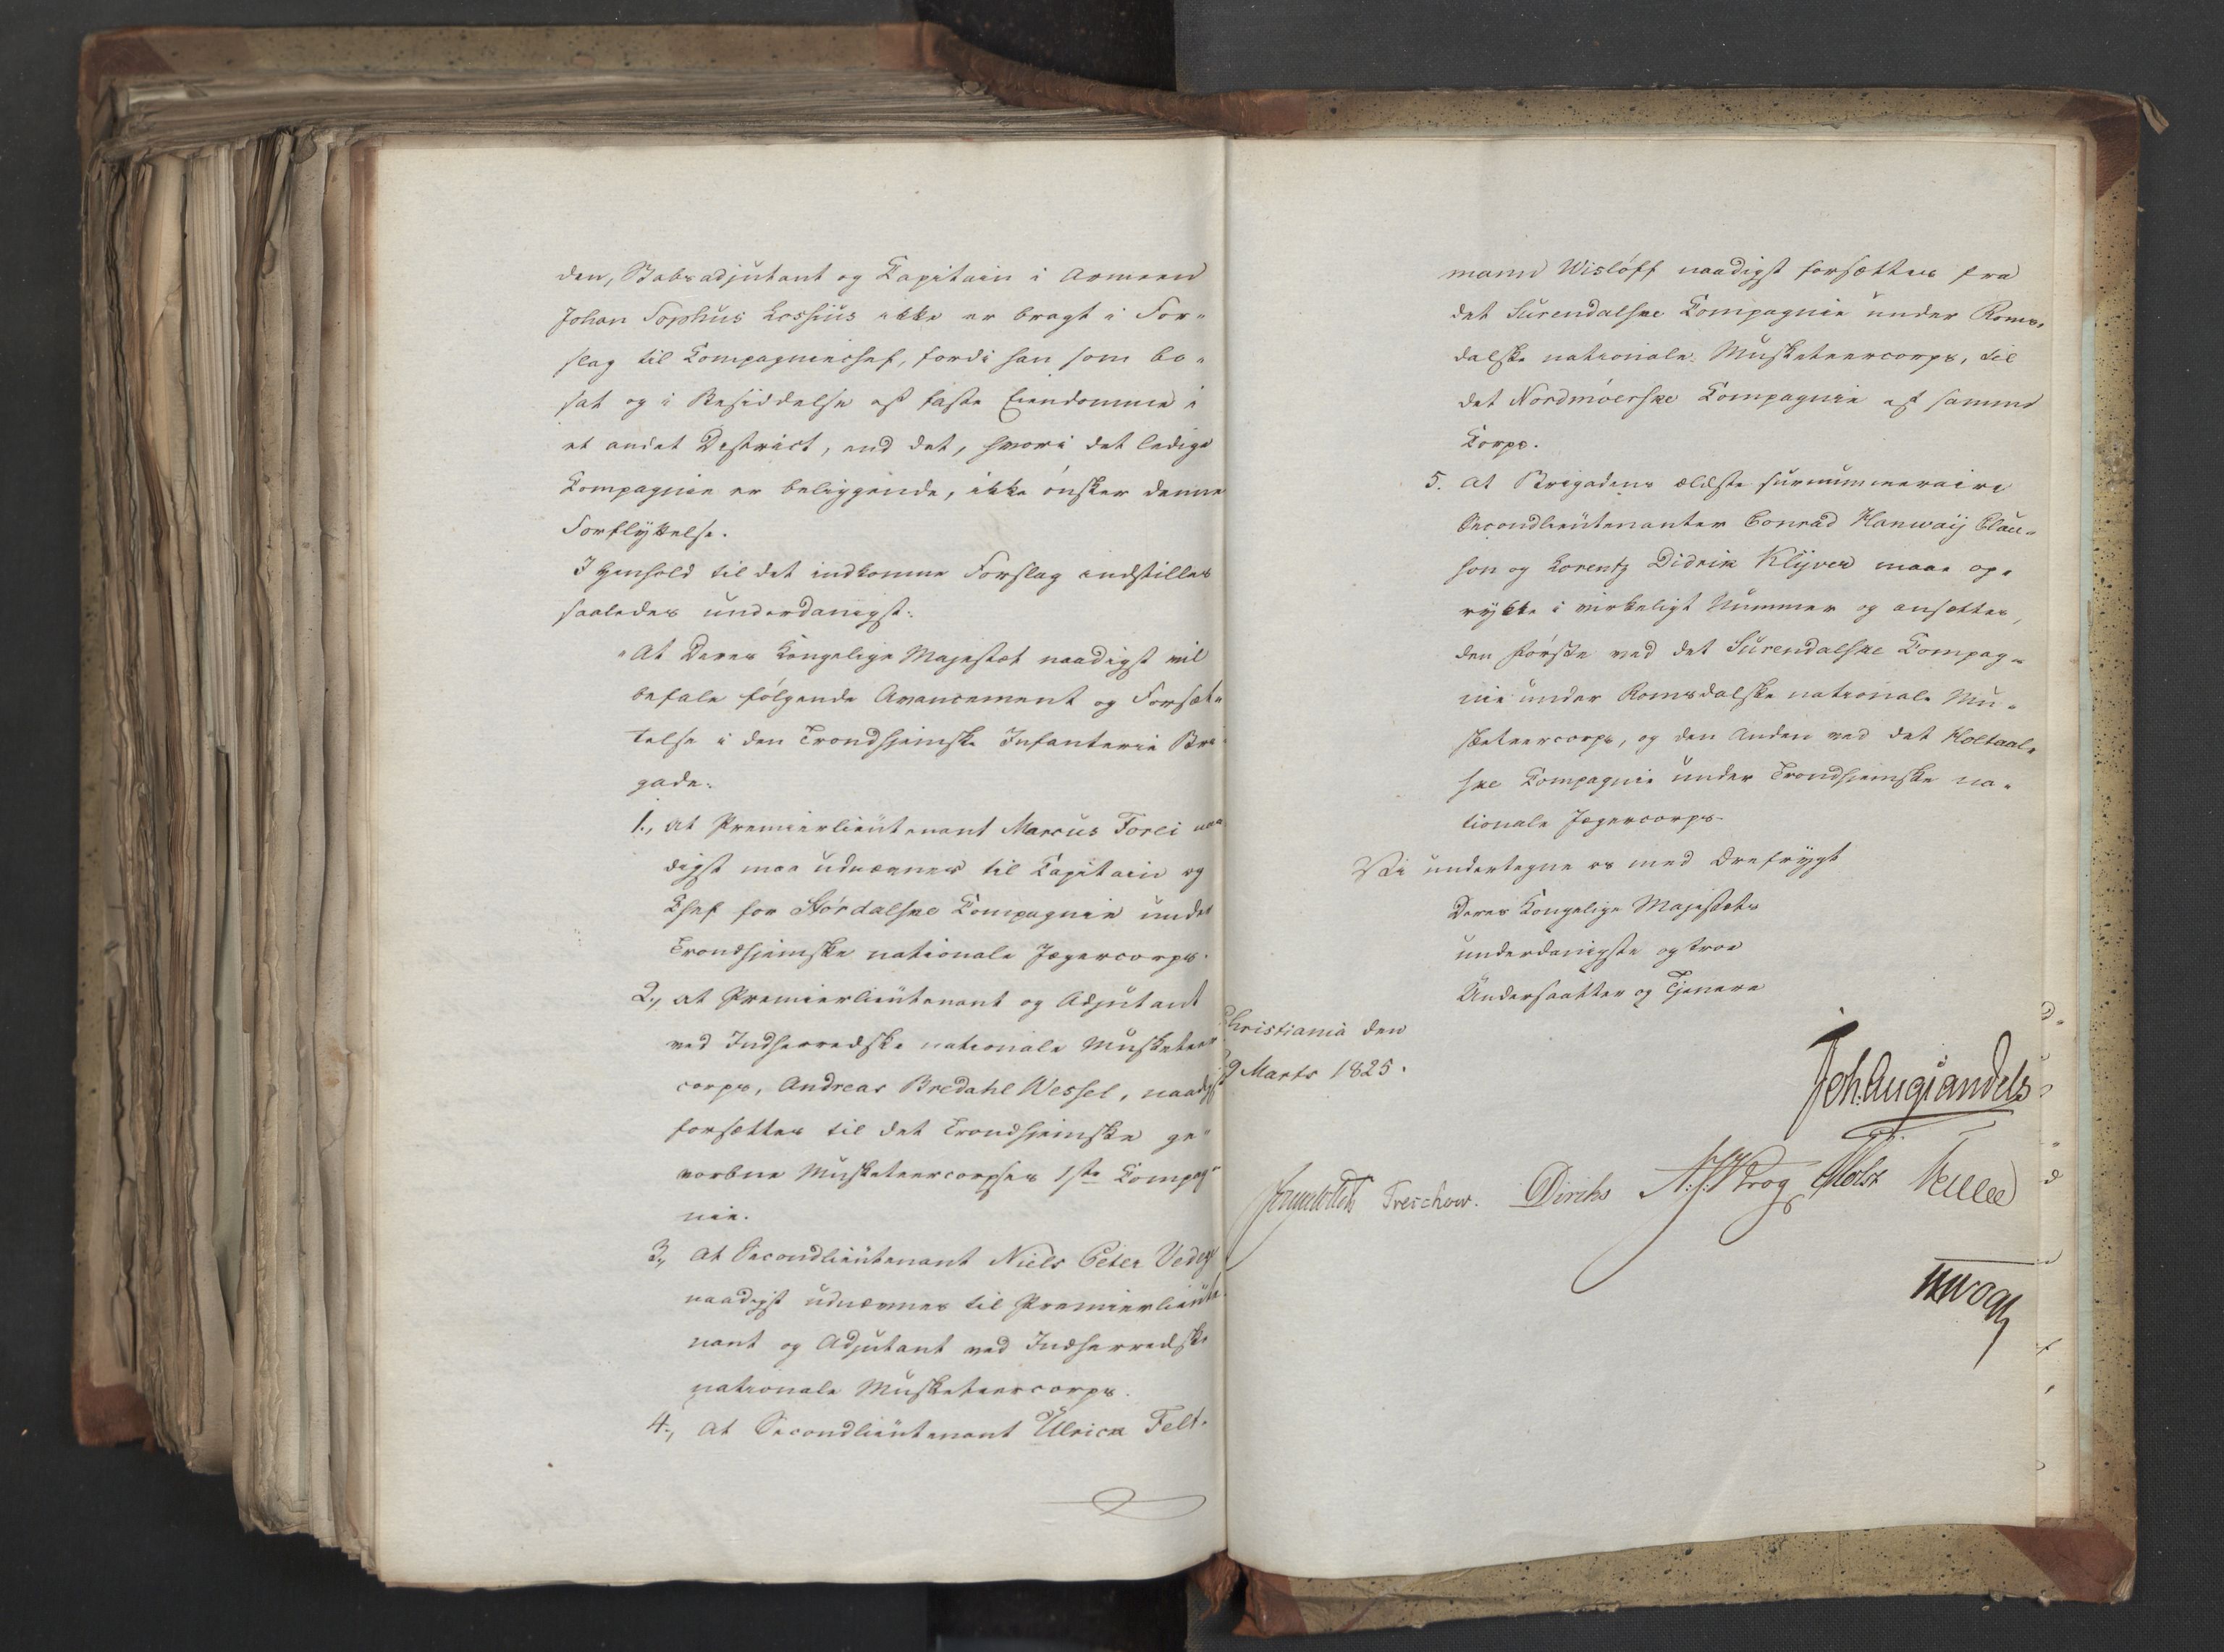 den, Stabsadjutant og Kapitain i Armeen
Johan Sophus Lossius ikke er bragt i For-
slag til Kompagniechef, fordi han som bo-
sat og i Besiddelse af faste Eiendomme i
et andet District, end det, hvori det ledige
Kompagnie er beliggende, ikke ønsker denne
Forflyttelse.
I Henhold til det indkomne Forslag indstilles
saaledes underdanigst:
"At Deres Kongelige Majestæt naadigst vil
befale følgende Avancement og Forsæt-
telse i den Trondhjemske Infanterie Bri-
gade:
1., at Premierlieutenant Marcus Forei naa-
digst maa udnævnes til Kapitain og
Chef for Størdalske Kompagnie under
Trondhjemske nationale Jægercorps.
2., at Premierlieutenant og Adjutant
ved Indherredske nationale Musketeer
corps, Andreas Bredahl Wessel, naadigst
forsættes til det Trondhjemske ge-
vorbne Musketeercorpses 1ste Kompag-
nie.
3., at Secondlieutenant Niels Peter
naadigst udnævnes til Premierlieute-
nant og Adjutant ved Indherredske
nationale Musketeercorps.
4., at Secondlieutenant Ulrick Felt-
mann Wisløff naadigst forsættes fra
det Surendalske Kompagnie under Roms-
dalske nationale Musketeercorps, til
det Nordmøerske Kompagnie af samme
Korps.
5. at Brigadens ældste surnummeraire
Secondlieutenanter Conrad Hanwaij Clau-
son og Lorentz Didrik Klüver maae op-
rykke i virkeligt Nummer og ansættes,
den første ved det Surendalske Kompag-
nie under Romsdalske nationale Mu-
sketeercorps, og den Anden ved det Holtaal-
ske Kompagnie under Trondhjemske na-
tionale Jægercorps.
Vi undertegne os med Ærefrygt
Deres Kongelige Majestæts
underdanigste og troe
Undersaatter og Tjenere
Christiania den
Marts 1825.
Joh. Aug. Sandels
Treschow. Diriks Krog Holst